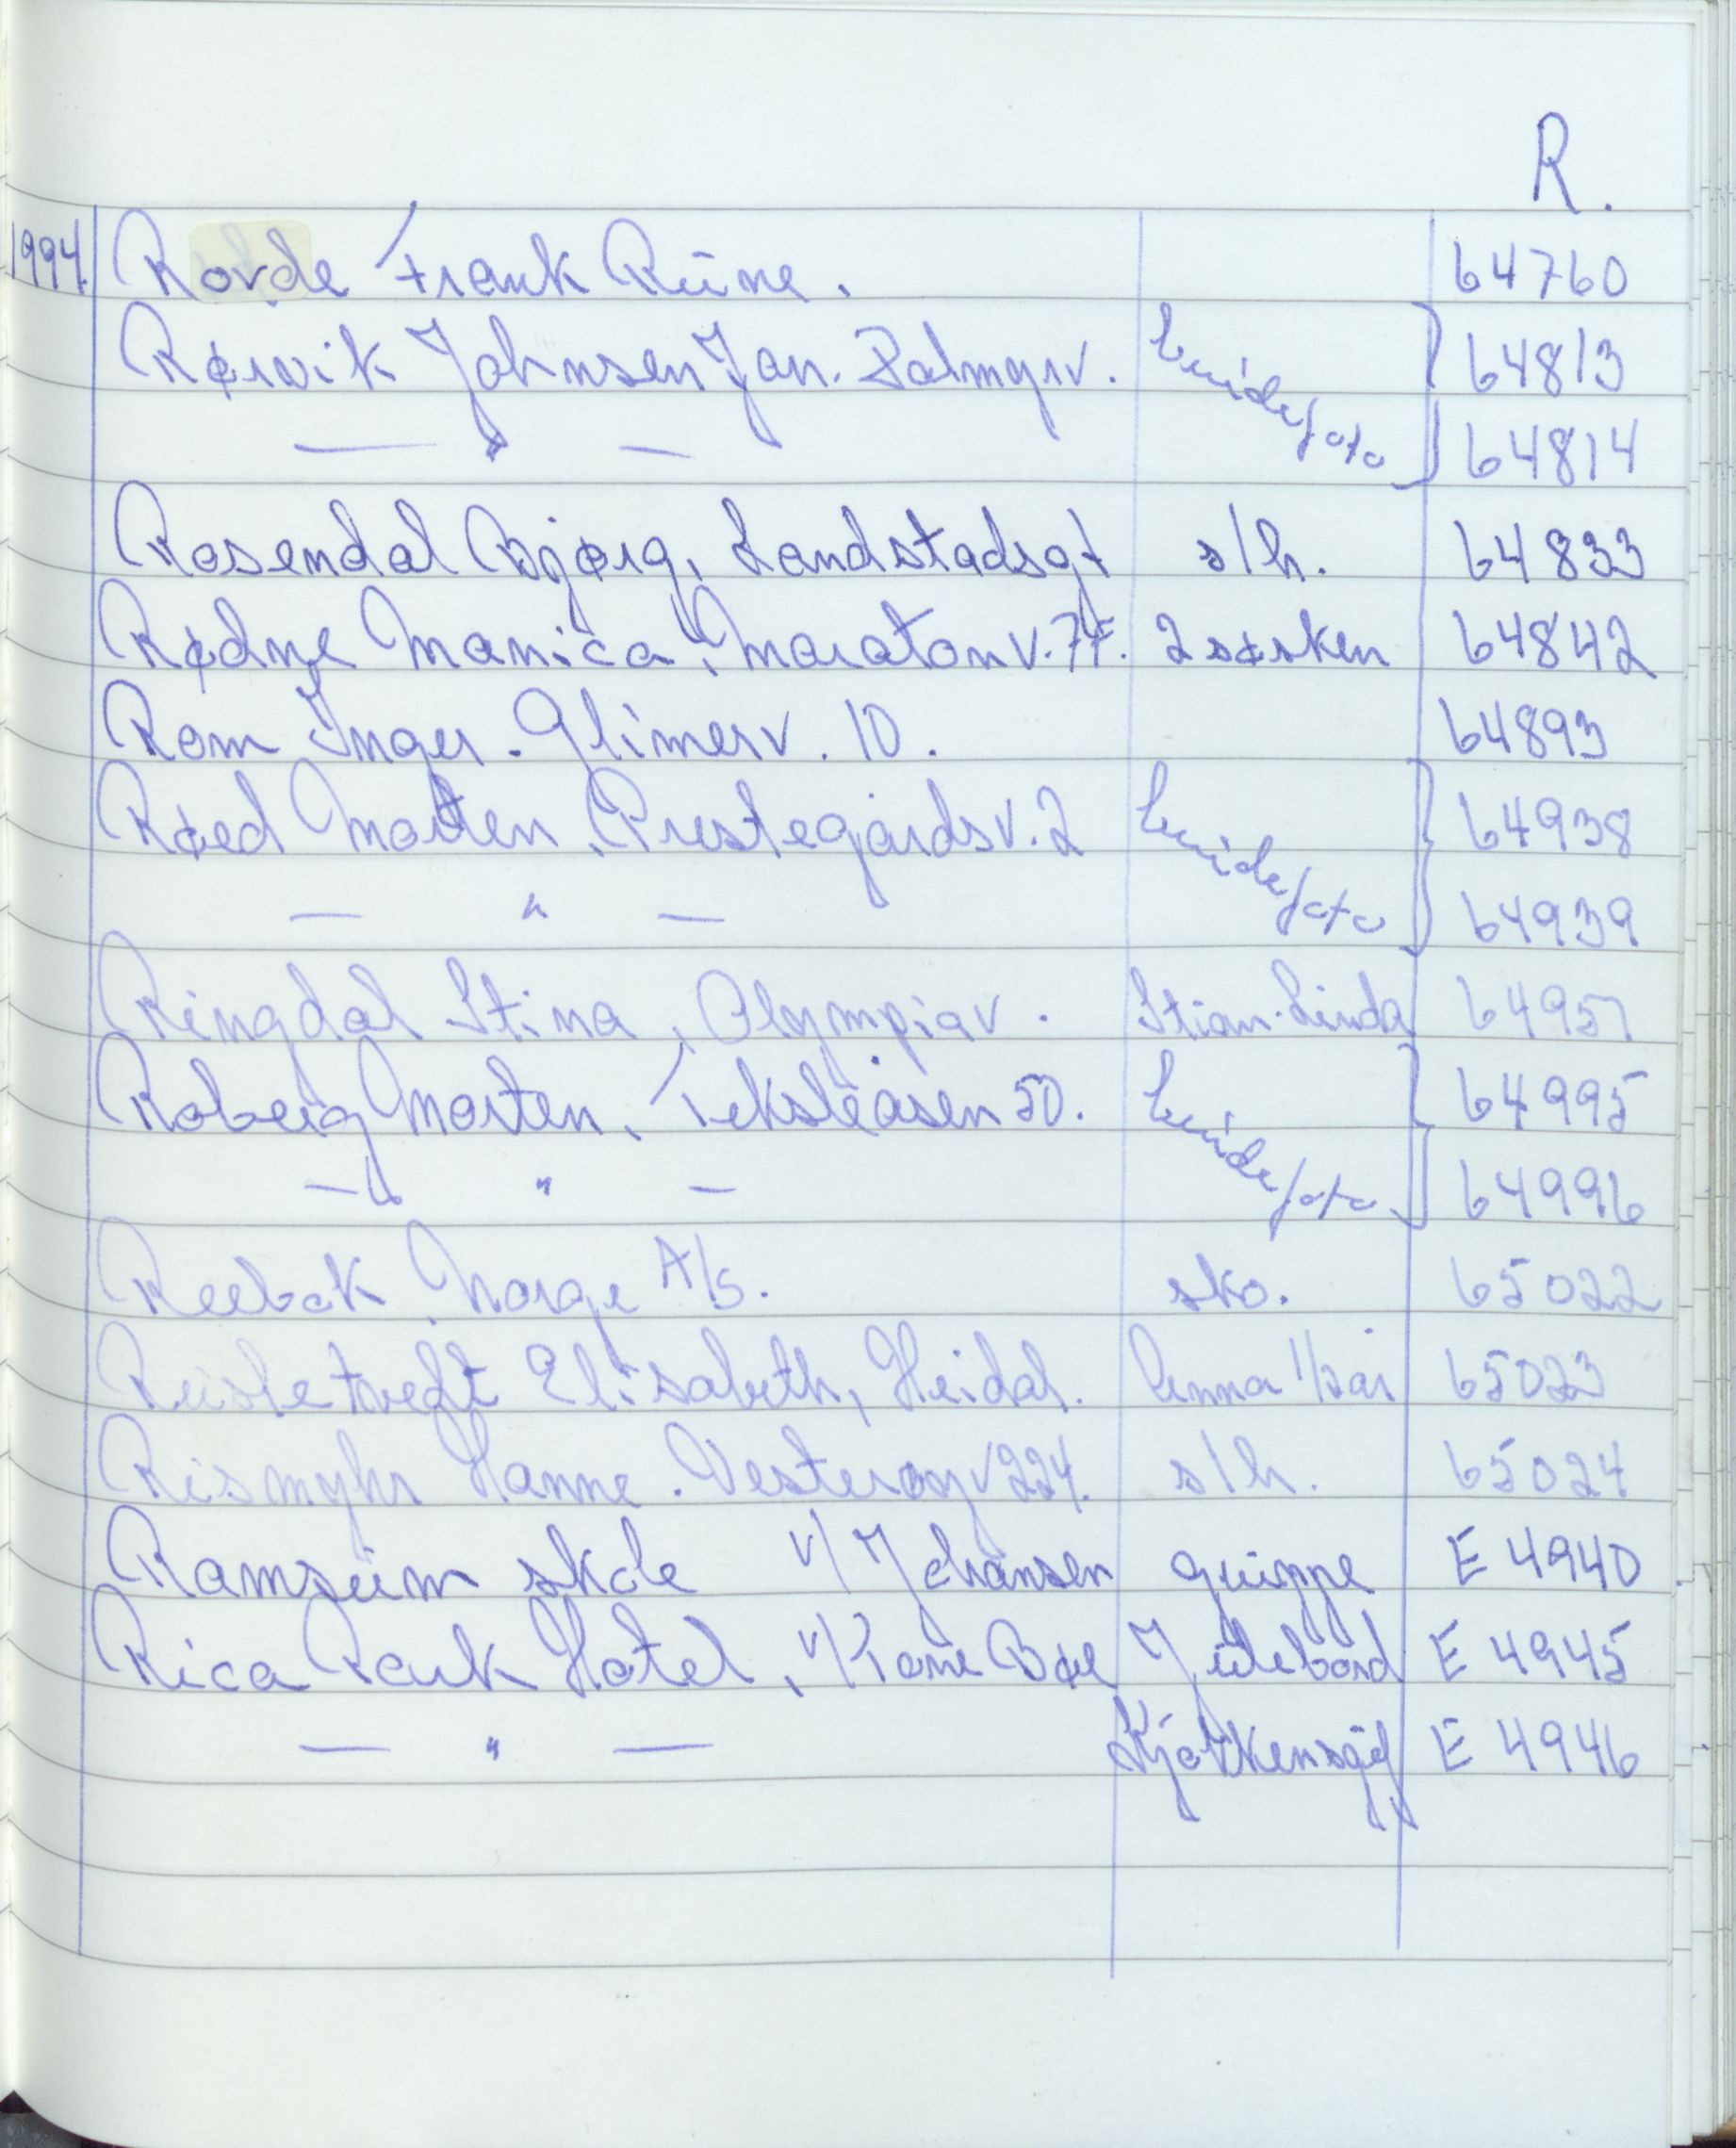 R.
1994 Rovde Frank Rune. 64760
Rørvik Johnsen Jan. Palmgrv. brudefoto 64813
— " — 64814
Rosendal Bjørg, Landstadsgt s/h. 64833
Rødne Monica, Maratonv. 7F. 2 søsken 64842
Rom Inger. Glimerv. 10. 64893
Røed Morten, Prestegårdsv. 2 brudefoto 64938
— " — 64939
Ringdal Stina, Olympiav. Stian. Linda 64957
Roberg Morten, Teksleåsen 50. brudefoto 64995
— " — 64996
Reebok Norge A/S. sko. 65022
Elisabeth, Heidal. Anna 1/2 år 65023
Rismyhr Hanne. Vesterøyv 224. s/h. 65024
Ramsum skole v/ Johansen gruppe E 4940
Rica Park Hotel, v/ Tone Bøe Julebord E 4945
— " — Kjøkkensjef E 4946